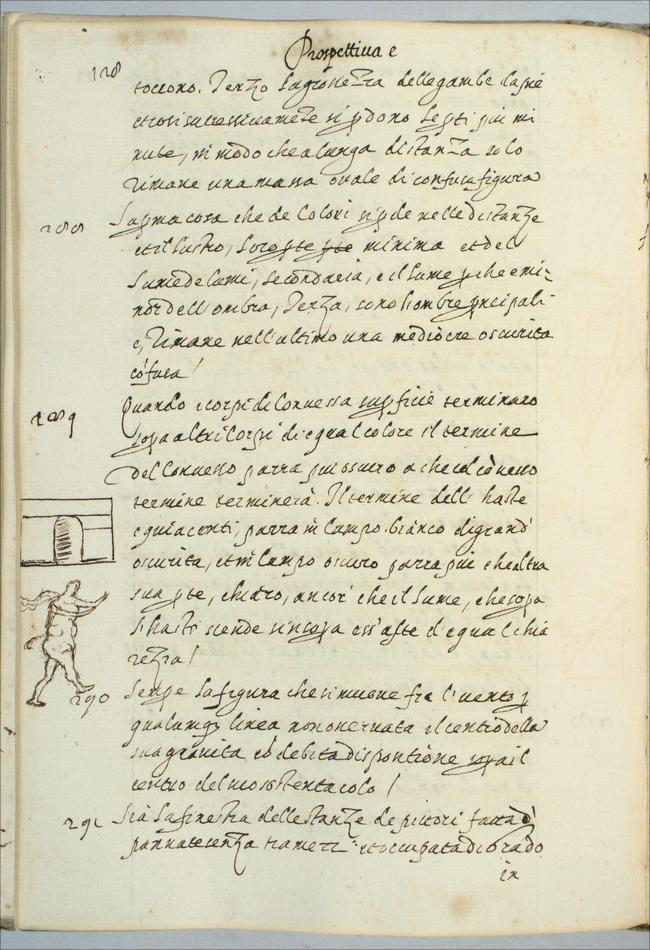 Prospettiua e
128
toccono. Terzo la grossezza delle gambe da piè
et cosi successiuamente si pdono le pti piu mi
nute, in modo che a lunga distanza solo
rimane una massa ouale di confusa figura
288 La pma cosa che de Colori si pde nelle distanze
et il Lustro, Lor pte minima et del
Lume de Lumi, secondaria, e il Lume pche e mi=
nor dell ombra, Terza, sono l ombre pncipali
e, rimane nell ultimo una mediocre oscurita
cõfusa /
289 Quando i corpi di Conuessa supficie terminano
sopa altri Corpi di egual colore il termine
del Conuesso parra piu oscuro
termine terminerà. Il termine dell haste
equiacenti, parra in Campo bianco di grand'
oscurita, et in Campo oscuro parra piu che altra
sua pte, chiaro, ancor che il Lume, che sopa
l haste scende sia sopa esse aste d egual chia
rezza /
290 Sempe la figura che si muoue fra l uento p
qualunq linea non osseruata il centro della
sua grauita cõ debita dispositione sopa il
centro del suo sostentacolo /
291 Sia la finestra delle stanze de pittori fatta d'
pannate senza tramezi et occupata di grado
in